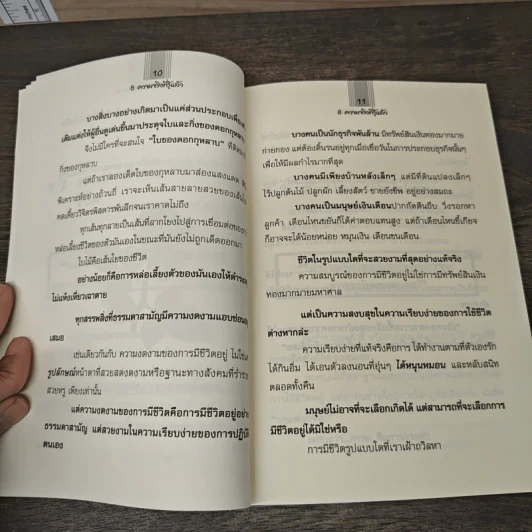 10
8 ความจริงที่รู้แล้ว
บางสิ่งบางอย่างเกิดมาเป็นแค่ส่วนประกอบเพื่อ
เติมแต่งให้ผู้อื่นดูเด่นขึ้นมาประดุจใบและกิ่งของดอกกุหลาบ
จึงไม่มีใครที่จะสนใจ "ใบของดอกกุหลาบ" ที่ติด
กิ่งของกุหลาบ
แต่ถ้าเราลองเด็ดใบของกุหลาบมาส่องแสงแดด
พิเคราะห์อย่างถ้วนถี่ เราจะเห็นเส้นสายลายสวยของเส้น
คดเคี้ยววิจิตรพิสดารพันลึกจนเราคาดไม่ถึง
ทุกเส้นทุกสายเป็นเส้นที่ลากโยงไปสู่การเชื่อมต่อของ
หล่อเลี้ยงชีวิตของตัวมันเองในขณะที่มันยังไม่ถูกเด็ดออกมา
ใบไม้คือเส้นใยของชีวิต
อย่างน้อยก็คือการหล่อเลี้ยงตัวของมันเองให้ดำรง
ไม่แห้งเหี่ยวเฉาตาย
ทุกสรรพสิ่งที่ธรรมดาสามัญมีความงดงามแอบซ่อน
เสมอ
เช่นเดียวกันกับ ความงดงามของการมีชีวิตอยู่ ไม่ใช่
รูปลักษณ์หน้าตาที่สวยสดงดงามหรือฐานะทางสังคมที่ร่ำรวย
สวยหรู เพียงเท่านั้น
แต่ความงดงามของการมีชีวิตคือการมีชีวิตอยู่อย่าง
ธรรมดาสามัญ แต่สวยงามในความเรียบง่ายของการปฏิบัติ
ตนเอง
11
8 ความจริงที่รู้แล้ว
บางคนเป็นนักธุรกิจพันล้าน มีทรัพย์สินเงินทองมากมาย
ก่ายกอง แต่ต้องดิ้นรนอยู่ทุกเมื่อเชื่อวันในการประกอบธุรกิจนั้นๆ
เพื่อให้มีผลกำไรมากที่สุด
บางคนมีเพียงบ้านหลังเล็กๆ แต่มีที่ดินแปลงเล็กๆ
ไว้ปลูกต้นไม้ ปลูกผัก เลี้ยงสัตว์ ขายยังชีพ อยู่อย่างสมถะ
บางคนเป็นมนุษย์เงินเดือนปากกัดตีนถีบ วิ่งรอกหา
ลูกค้า เดือนไหนขยันก็ได้ค่าตอบแทนสูง แต่ถ้าเดือนไหนขี้เกียจ
ก็อาจจะได้น้อยหน่อย หมุนเงิน เดือนชนเดือน
ชีวิตในรูปแบบใดที่จะสวยงามที่สุดอย่างแท้จริง
ความสมบูรณ์ของการมีชีวิตอยู่ไม่ใช่การมีทรัพย์สินเงิน
ทองมากมายมหาศาล
แต่เป็นความสงบสุขในความเรียบง่ายของการใช้ชีวิต
ต่างหากล่ะ
ความเรียบง่ายที่แท้จริงคือการ ได้ทำงานตามที่ตัวเองรัก
ได้กินอิ่ม ได้เอนตัวลงนอนที่อุ่นๆ ได้หนุนหมอน และหลับสนิท
ตลอดทั้งคืน
มนุษย์ไม่อาจที่จะเลือกเกิดได้ แต่สามารถที่จะเลือกการ
มีชีวิตอยู่ได้มิใช่หรือ
การมีชีวิตรูปแบบใดที่เราเฝ้าถวิลหา